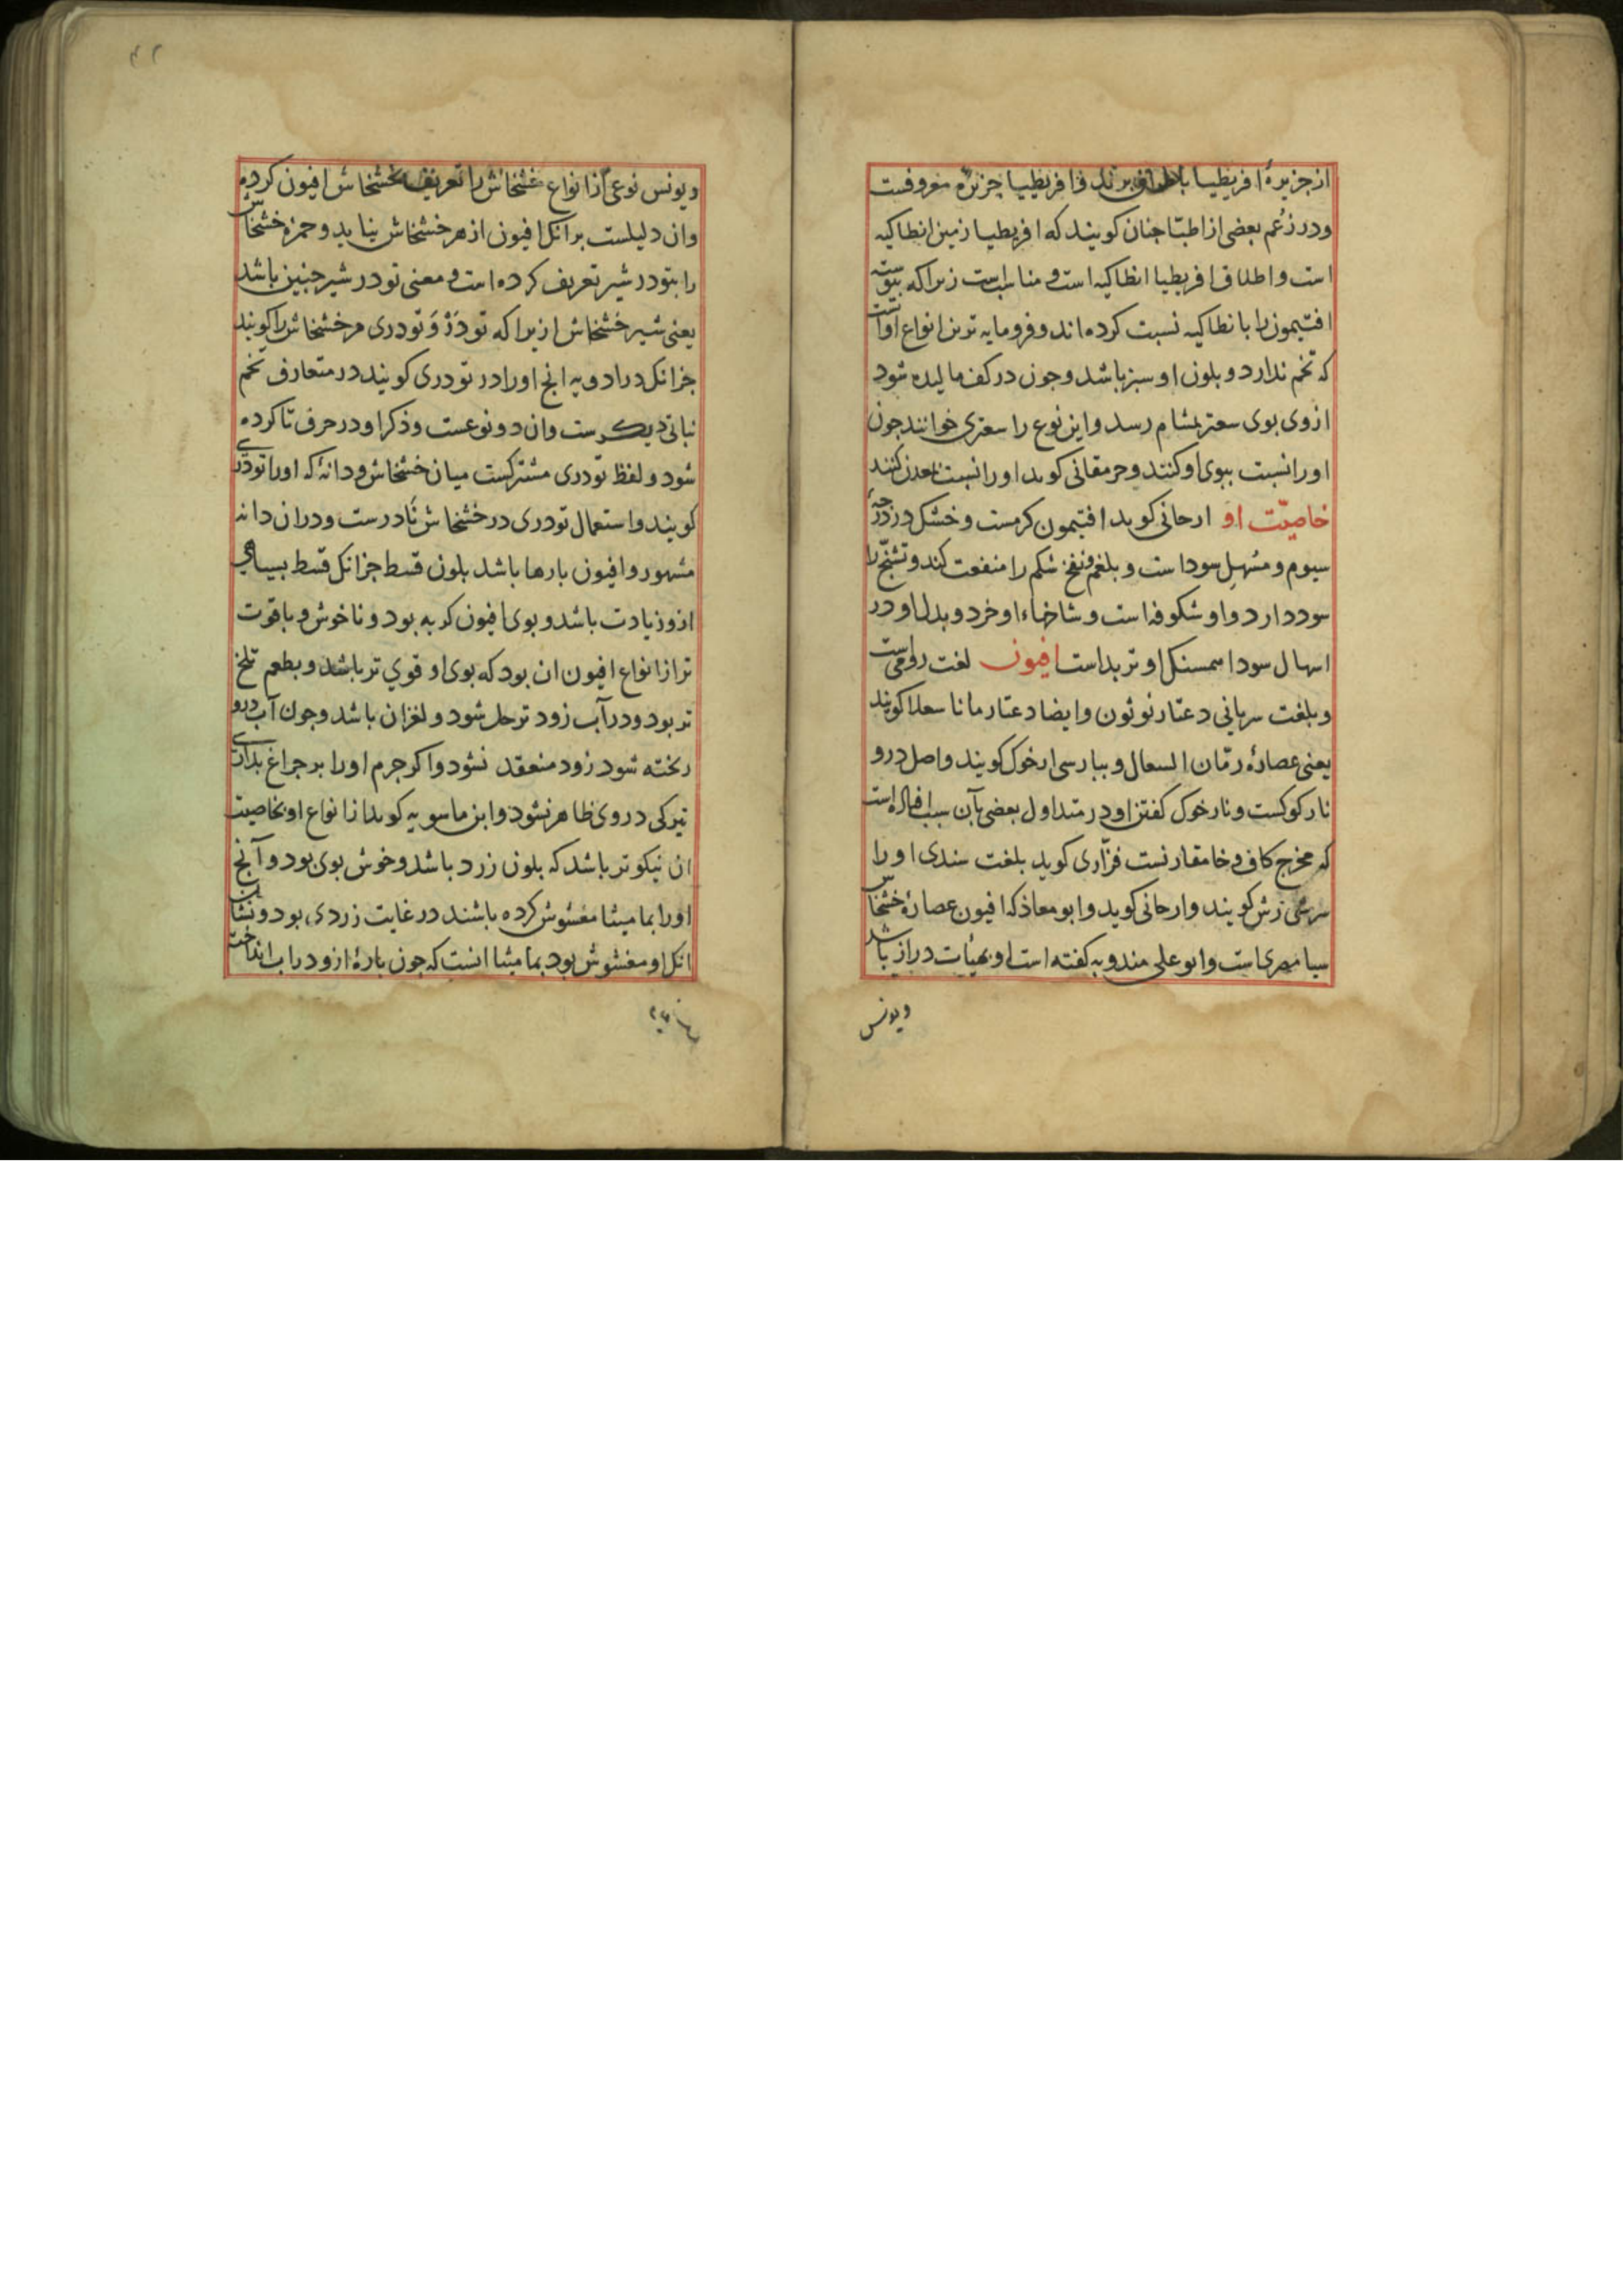 از جزیرهٔ افریطیا باطراف برند و افریطیا جزیره معروفست
و در زعم بعضی از اطبا چنان کویند که افریطیا زمین انطاکیه
است و اطلاق افریطیا انطاکیه است و مناسبست زیرا که
افتیمون را بانطاکیه نسبت کرده اند و فرومایه ترین انواع او آنست
که تخم ندارد و بلون او سبز باشد و جون در کف مالیده شود
ازوی بوی سعتر بمشام رسد و این نوع را سعتری خوانند جون
اورا نسبت ببوی او کنند و جرمقانی کوید اورا نسبت بمعدن کنند
خاصیّت او ارجانی کوید افتیمون کرمست و خشک در درجهٔ
سیوم و مسهل سودا ست و بلغم و نفخ شکم را منفعت کند و تشنّج را
سود دارد و او شکوفه است و شاخهاء او خرد و بدل او در
اسهال سودا همسنک او تربد است افیون لغت رومی است
و بلغت سریانی دعتار نوثون و ایضا دعتار مانا سعلا کویند
یعنی عصارهٔ رمّان السعال و بپارسی ارخوک کویند و اصل درو
نارکوکست و نارخوک کفتن او در متداول بعضی بآن سبب است
که مخرج کاف و خا مقارنست فزاری کوید بلغت سندی اورا
کویند و ارجانی کوید و ابو معاذ که افیون عصارهٔ خشخاش
سیا مصری است و ابو علی مندویه کفته است او بهیأت دراز باشد
ویونس
۴۲
ویونس نوعی از انواع خشخاش را تعریف بخشخاش افیون کرده
وان دلیلست برانک افیون از هر خشخاش نیاید و حمزه خشخاش
را بتودر شیر تعریف کرده است و معنی تودر شیر جنین باشد
یعنی شیر خشخاش ازیرا که تودَرْ وَ تودری مر خشخاش را کویند
جزانک در ادویه انج اورا در تودری کویند در متعارف تخم
نباتی دیکرست و ان دو نوعست و ذکر او در حرف تا کرده
شود و لفظ تودری مشترکست میان خشخاش و دانهٔ که اورا تودری
کویند و استعمال تودری در خشخاش نادرست و در ان دانه
مشهور و افیون بارها باشد بلون قسط جزانک قسط بسیاهی
ازو زیادت باشد و بوی افیون کریه بود و ناخوش و باقوت
تر از انواع افیون ان بود که بوی او قوی تر باشد و بطعم تلخ
تر بود و در آب زود تر حل شود و لغزان باشد و جون آب درو
ریخته شود زود منعقد نشود و اکر جرم اورا بر جراغ بداری
تیرکی در وی ظاهر نشود و ابن ماسویه کوید از انواع او بخاصیت
ان نیکوتر باشد که بلون زرد باشد و خوش بوی بود و آنج
اورا بمامیثا مغشوش کرده باشند در غایت زردی بود و نشان
انک او مغشوش بود بمامیثا انست که جون بارهٔ ازو در اب انداخته